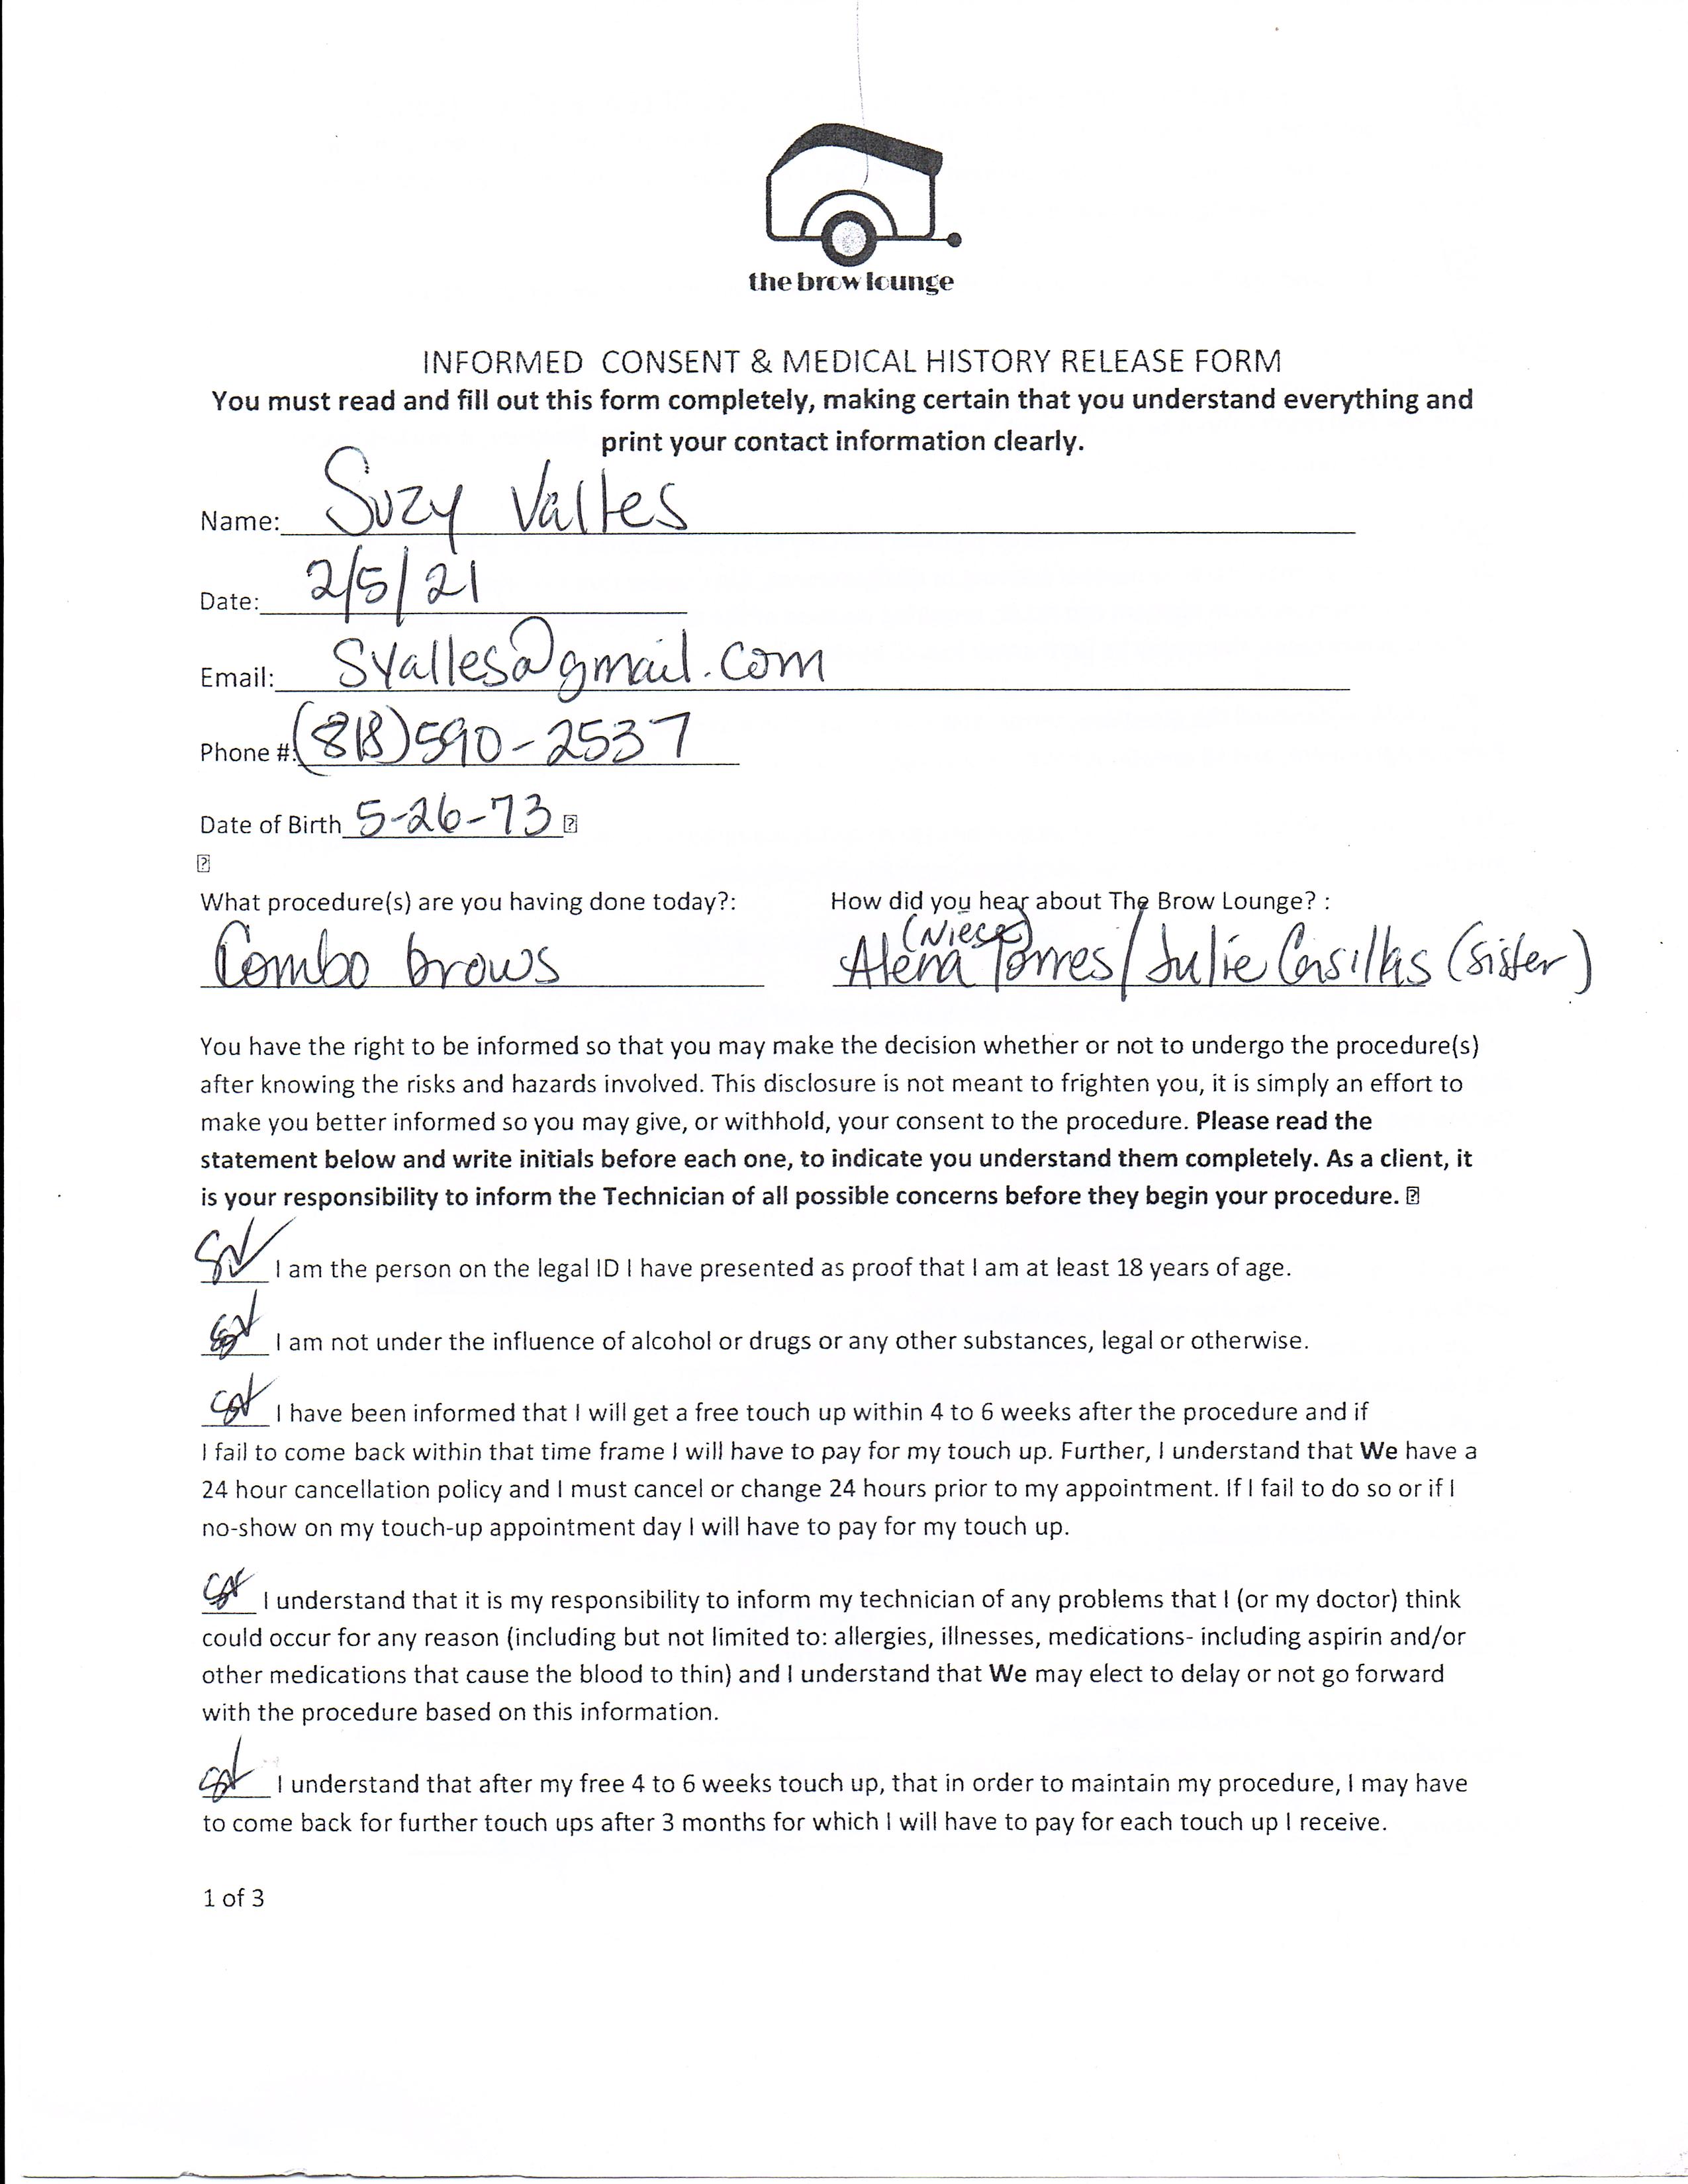 the brow lounge
INFORMED CONSENT & MEDICAL HISTORY RELEASE FORM
You must read and fill out this form completely, making certain that you understand everything and
print your contact information clearly.
Name: Suzy Valles
Date: 2/5/21
Email: Svalles@gmail.com
Phone #: (818)590-2537
Date of Birth 5-26-73
What procedure(s) are you having done today?: How did you hear about The Brow Lounge? :
(Niece)
Combo brows Alena Torres / Julie Casillas (sister)
You have the right to be informed so that you may make the decision whether or not to undergo the procedure(s)
after knowing the risks and hazards involved. This disclosure is not meant to frighten you, it is simply an effort to
make you better informed so you may give, or withhold, your consent to the procedure. Please read the
statement below and write initials before each one, to indicate you understand them completely. As a client, it
is your responsibility to inform the Technician of all possible concerns before they begin your procedure.
SV I am the person on the legal ID I have presented as proof that I am at least 18 years of age.
SV I am not under the influence of alcohol or drugs or any other substances, legal or otherwise.
SV I have been informed that I will get a free touch up within 4 to 6 weeks after the procedure and if
I fail to come back within that time frame I will have to pay for my touch up. Further, I understand that We have a
24 hour cancellation policy and I must cancel or change 24 hours prior to my appointment. If I fail to do so or if I
no-show on my touch-up appointment day I will have to pay for my touch up.
SV I understand that it is my responsibility to inform my technician of any problems that I (or my doctor) think
could occur for any reason (including but not limited to: allergies, illnesses, medications- including aspirin and/or
other medications that cause the blood to thin) and I understand that We may elect to delay or not go forward
with the procedure based on this information.
SV I understand that after my free 4 to 6 weeks touch up, that in order to maintain my procedure, I may have
to come back for further touch ups after 3 months for which I will have to pay for each touch up I receive.
1 of 3